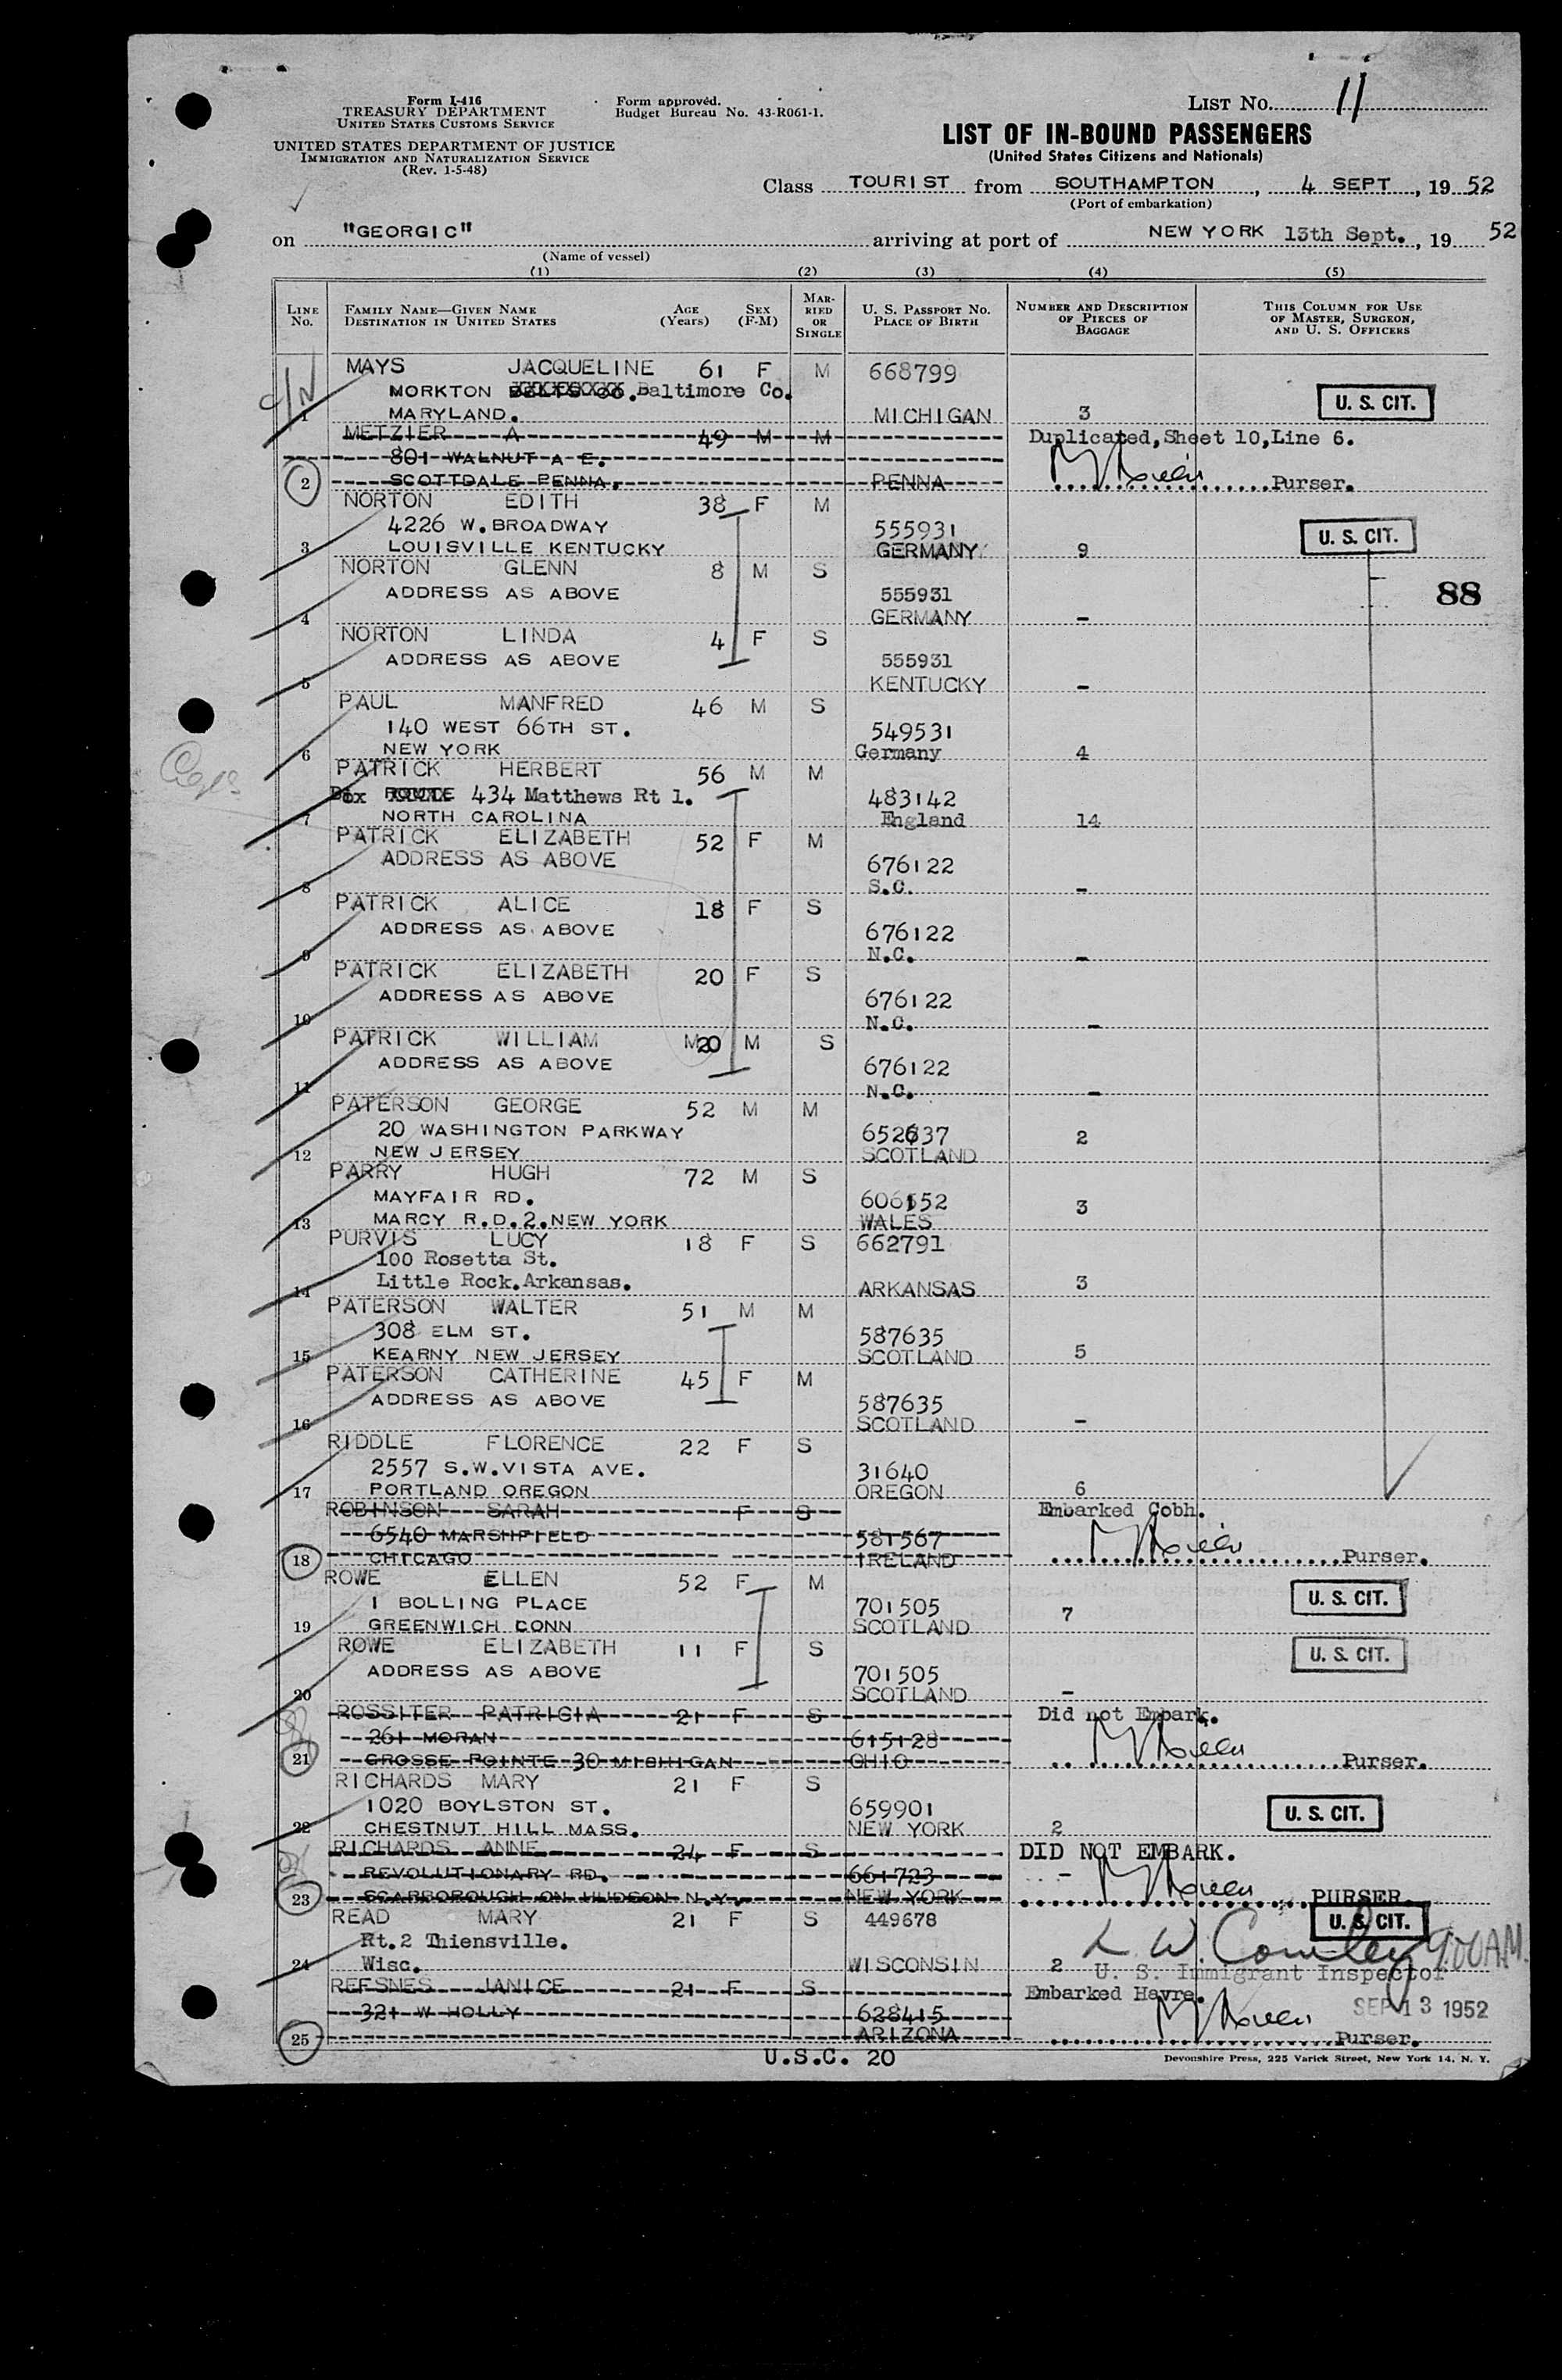 Form I-416
TREASURY DEPARTMENT
UNITED STATES CUSTOMS SERVICE
UNITED STATES DEPARTMENT OF JUSTICE
IMMIGRATION AND NATURALIZATION SERVICE
(Rev. 1-5-48)
Form approved.
Budget Bureau No. 43-R061-1.
LIST No. 11
LIST OF IN-BOUND PASSENGERS
(United States Citizens and Nationals)
Class TOURIST from SOUTHAMPTON, 4 SEPT, 19 52
(Port of embarkation)
on "GEORGIC" arriving at port of NEW YORK 13th Sept., 19 52
(Name of vessel)
(1) (2) (3) (4) (5)
LINE No. FAMILY NAME—GIVEN NAME DESTINATION IN UNITED STATES AGE (Years) SEX (F-M) MARRIED OR SINGLE U. S. PASSPORT No. PLACE OF BIRTH NUMBER AND DESCRIPTION OF PIECES OF BAGGAGE THIS COLUMN FOR USE OF MASTER, SURGEON, AND U. S. OFFICERS
MAYS JACQUELINE 61 F M 668799
MORKTON Baltimore Co.
1 MARYLAND. MICHIGAN 3 U. S. CIT.
METZIER A 49 M M Duplicated,Sheet 10,Line 6.
801 WALNUT A E.
2 SCOTTDALE PENNA. PENNA Purser.
NORTON EDITH 38 F M
4226 W. BROADWAY 555931
3 LOUISVILLE KENTUCKY GERMANY 9 U. S. CIT.
NORTON GLENN 8 M S
ADDRESS AS ABOVE 555931 88
4 GERMANY –
NORTON LINDA 4 F S
ADDRESS AS ABOVE 555931
5 KENTUCKY –
PAUL MANFRED 46 M S
140 WEST 66TH ST. 549531
6 NEW YORK Germany 4
PATRICK HERBERT 56 M M
Box 434 Matthews Rt 1. 483142
7 NORTH CAROLINA England 14
PATRICK ELIZABETH 52 F M
ADDRESS AS ABOVE 676122
8 S.C. –
PATRICK ALICE 18 F S
ADDRESS AS ABOVE 676122
9 N.C. –
PATRICK ELIZABETH 20 F S
ADDRESS AS ABOVE 676122
10 N.C. –
PATRICK WILLIAM 20 M S
ADDRESS AS ABOVE 676122
11 N.C. –
PATERSON GEORGE 52 M M
20 WASHINGTON PARKWAY 652637 2
12 NEW JERSEY SCOTLAND
PARRY HUGH 72 M S
MAYFAIR RD. 606152 3
13 MARCY R.D.2.NEW YORK WALES
PURVIS LUCY 18 F S 662791
100 Rosetta St.
14 Little Rock.Arkansas. ARKANSAS 3
PATERSON WALTER 51 M M
308 ELM ST. 587635
15 KEARNY NEW JERSEY SCOTLAND 5
PATERSON CATHERINE 45 F M
ADDRESS AS ABOVE 587635
16 SCOTLAND –
RIDDLE FLORENCE 22 F S
2557 S.W.VISTA AVE. 31640
17 PORTLAND OREGON OREGON 6
ROBINSON SARAH F S Embarked Cobh.
6540 MARSHFIELD 581567
18 CHICAGO IRELAND Purser.
ROWE ELLEN 52 F M
1 BOLLING PLACE 701505 U. S. CIT.
19 GREENWICH CONN SCOTLAND 7
ROWE ELIZABETH 11 F S
ADDRESS AS ABOVE 701505 U. S. CIT.
20 SCOTLAND –
ROSSITER PATRICIA 21 F S Did not Embark.
261 MORAN 615128
21 GROSSE POINTE 30 MISHIGAN OHIO Purser.
RICHARDS MARY 21 F S
1020 BOYLSTON ST. 659901 U. S. CIT.
22 CHESTNUT HILL MASS. NEW YORK 2
RICHARDS ANNE 24 F S DID NOT EMBARK.
REVOLUTIONARY RD. 661723
23 SCARBOROUGH ON HUDSON N.Y. NEW YORK PURSER
READ MARY 21 F S 449678 U. S. CIT.
Rt.2 Thiensville. L. W. Conley 9.00 A.M.
24 Wisc. WISCONSIN 2 U. S. Immigrant Inspector
REFSNES JANICE 21 F S Embarked Havre.
321 W HOLLY 628415 SEP 13 1952
25 ARIZONA Purser.
U.S.C. 20
Devonshire Press, 225 Varick Street, New York 14, N. Y.